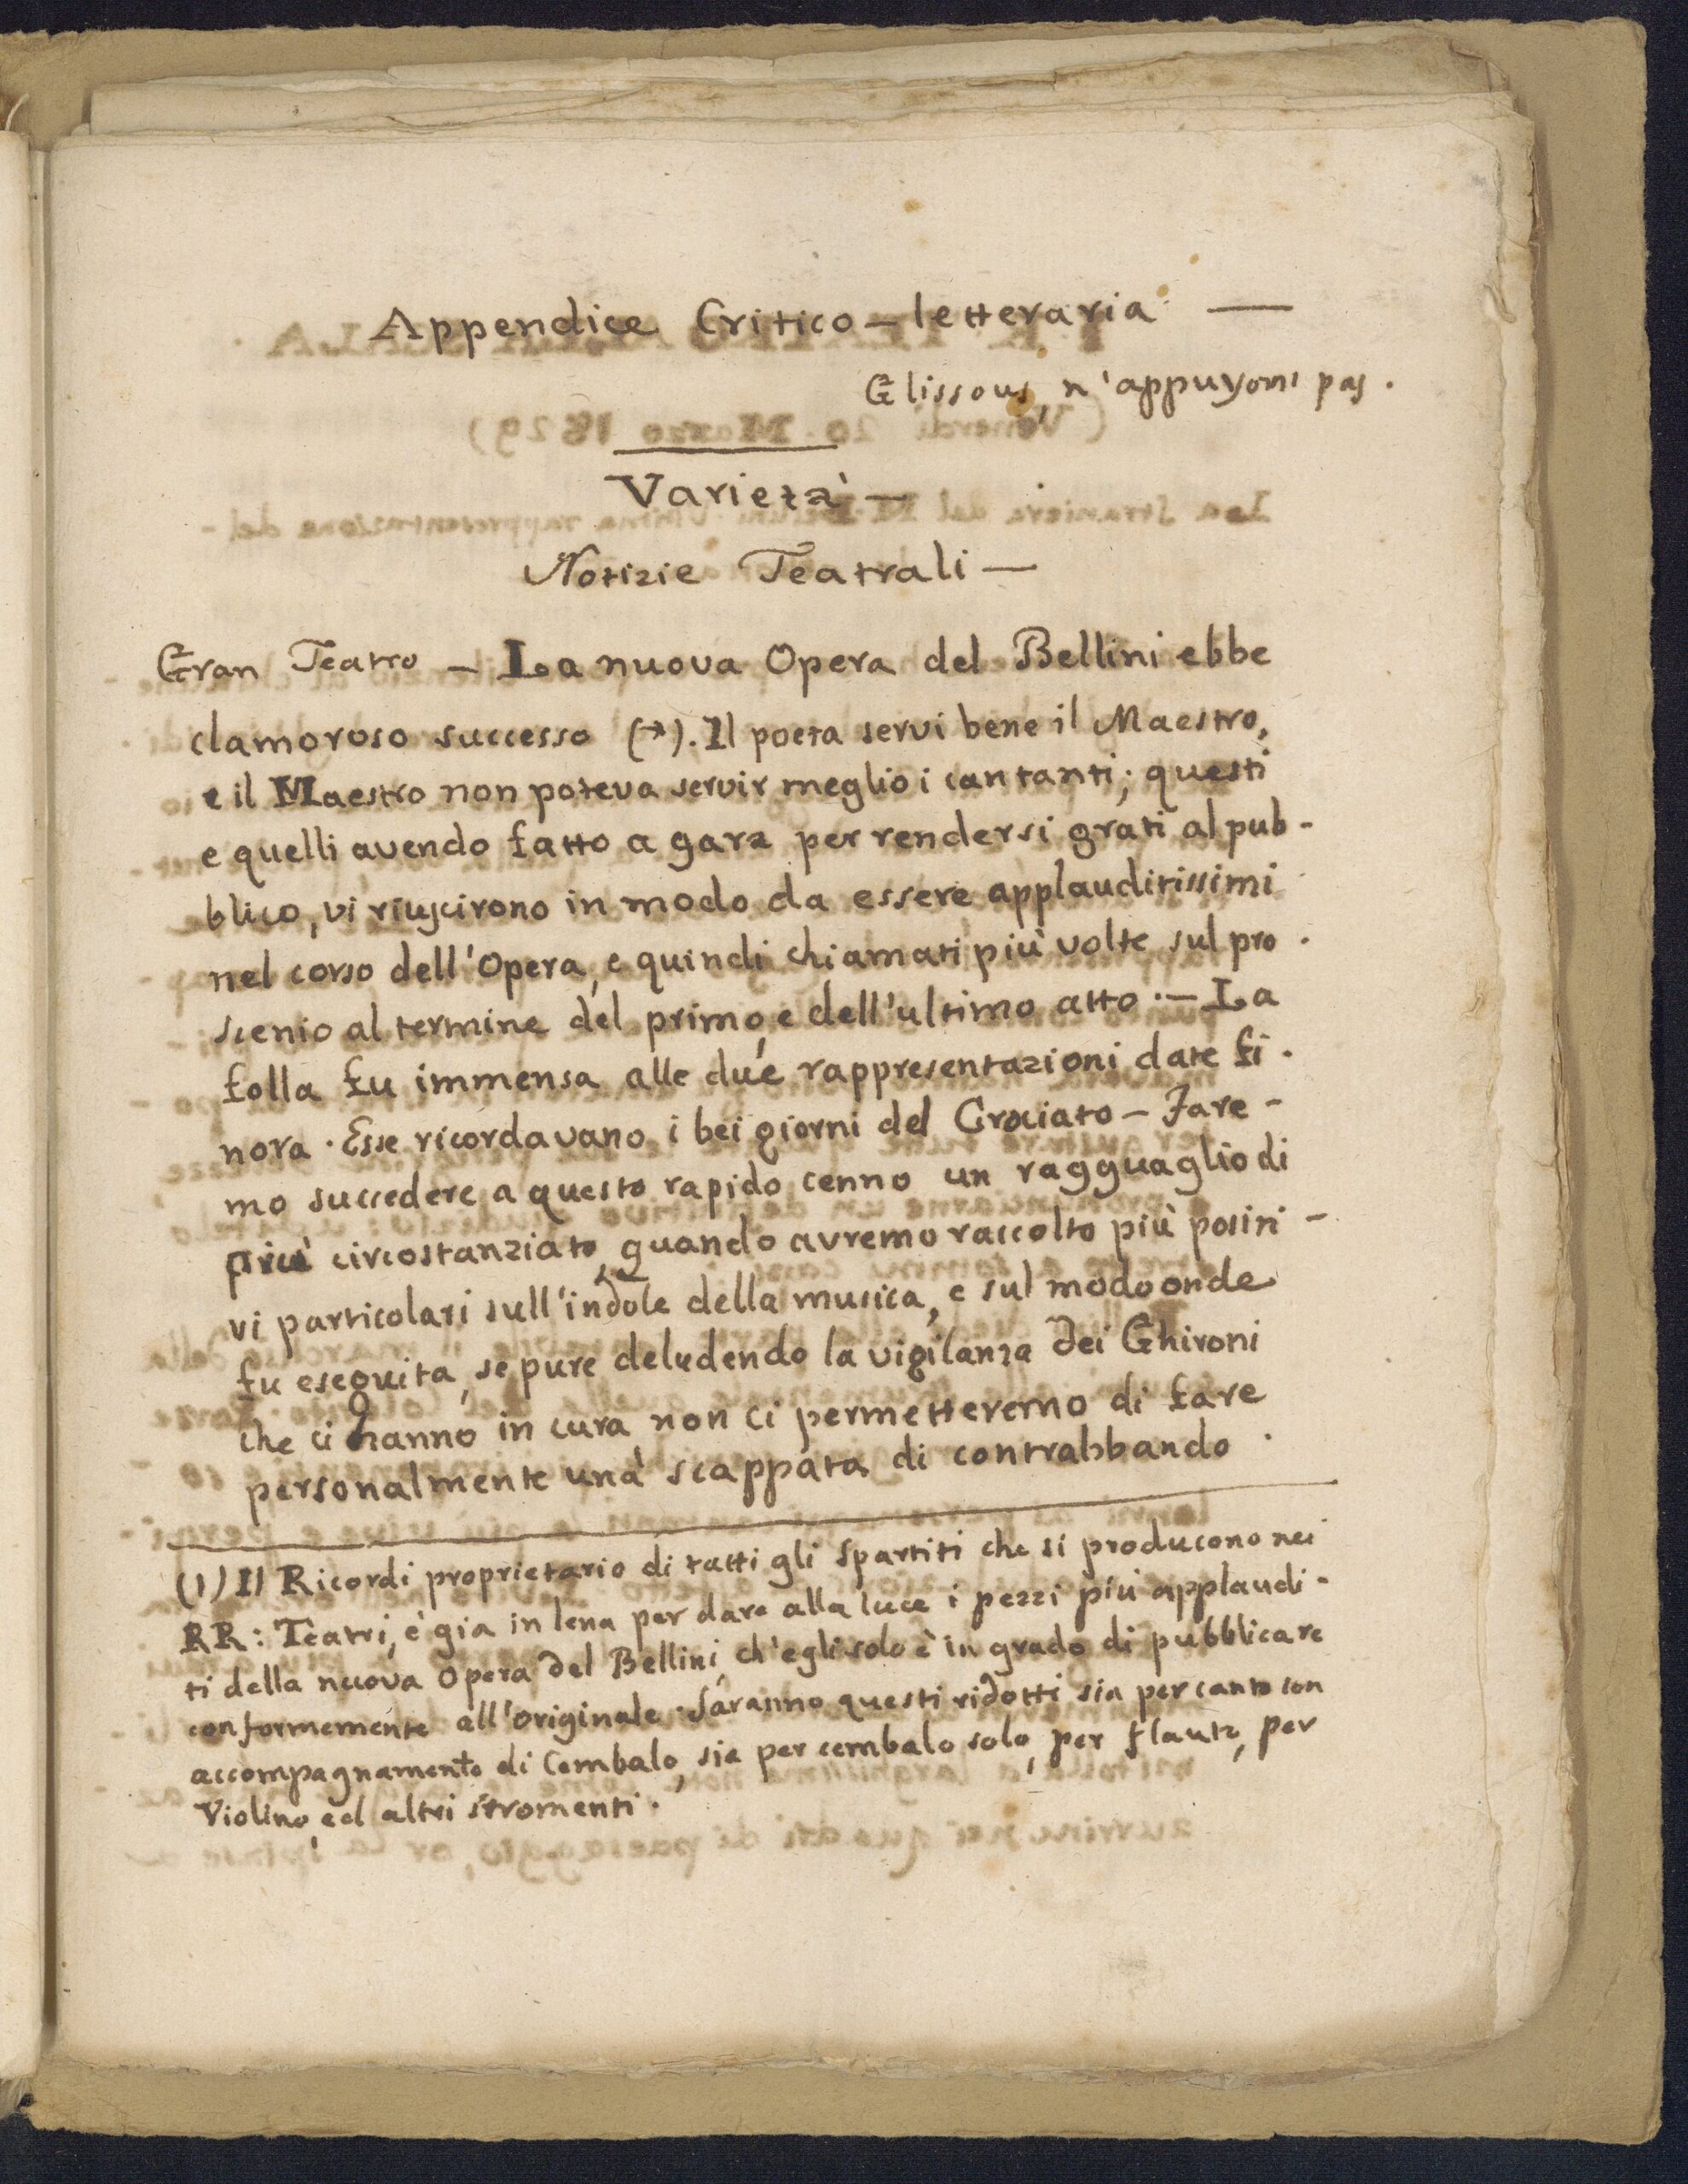 Appendice Critico-letteraria —
Glissons, n'appuyons pas.
Varietà —
Notizie Teatrali —
Gran Teatro — La nuova Opera del Bellini ebbe
clamoroso successo (*). Il poeta servi bene il Maestro,
e il Maestro non poteva servir meglio i cantanti; questi
e quelli avendo fatto a gara per rendersi grati al pub-
blico, vi riuscirono in modo da essere applauditissimi
nel corso dell'Opera, e quindi chiamati più volte sul pro-
scenio al termine del primo, e dell'ultimo atto. — La
folla fu immensa alle due rappresentazioni date fi-
nora. Esse ricordavano i bei giorni del Crociato — Fare-
mo succedere a questo rapido cenno un ragguaglio di
più circostanziato, quando avremo raccolto più positi-
vi particolari sull'indole della musica, e sul modo onde
fu eseguita, se pure deludendo la vigilanza dei Ghironi
che ci hanno in cura non ci permetteremo di fare
personalmente una scappata di contrabbando.
(1) Il Ricordi proprietario di tutti gli Spartiti che si producono nei
RR: Teatri, è gia in lena per dare alla luce i pezzi più applaudi-
ti della nuova Opera del Bellini, ch'egli solo è in grado di pubblicare
conformemente all'originale. Saranno questi ridotti sia per canto con
accompagnamento di Cembalo, sia per cembalo solo, per flauto, per
Violino, ed altri stromenti.